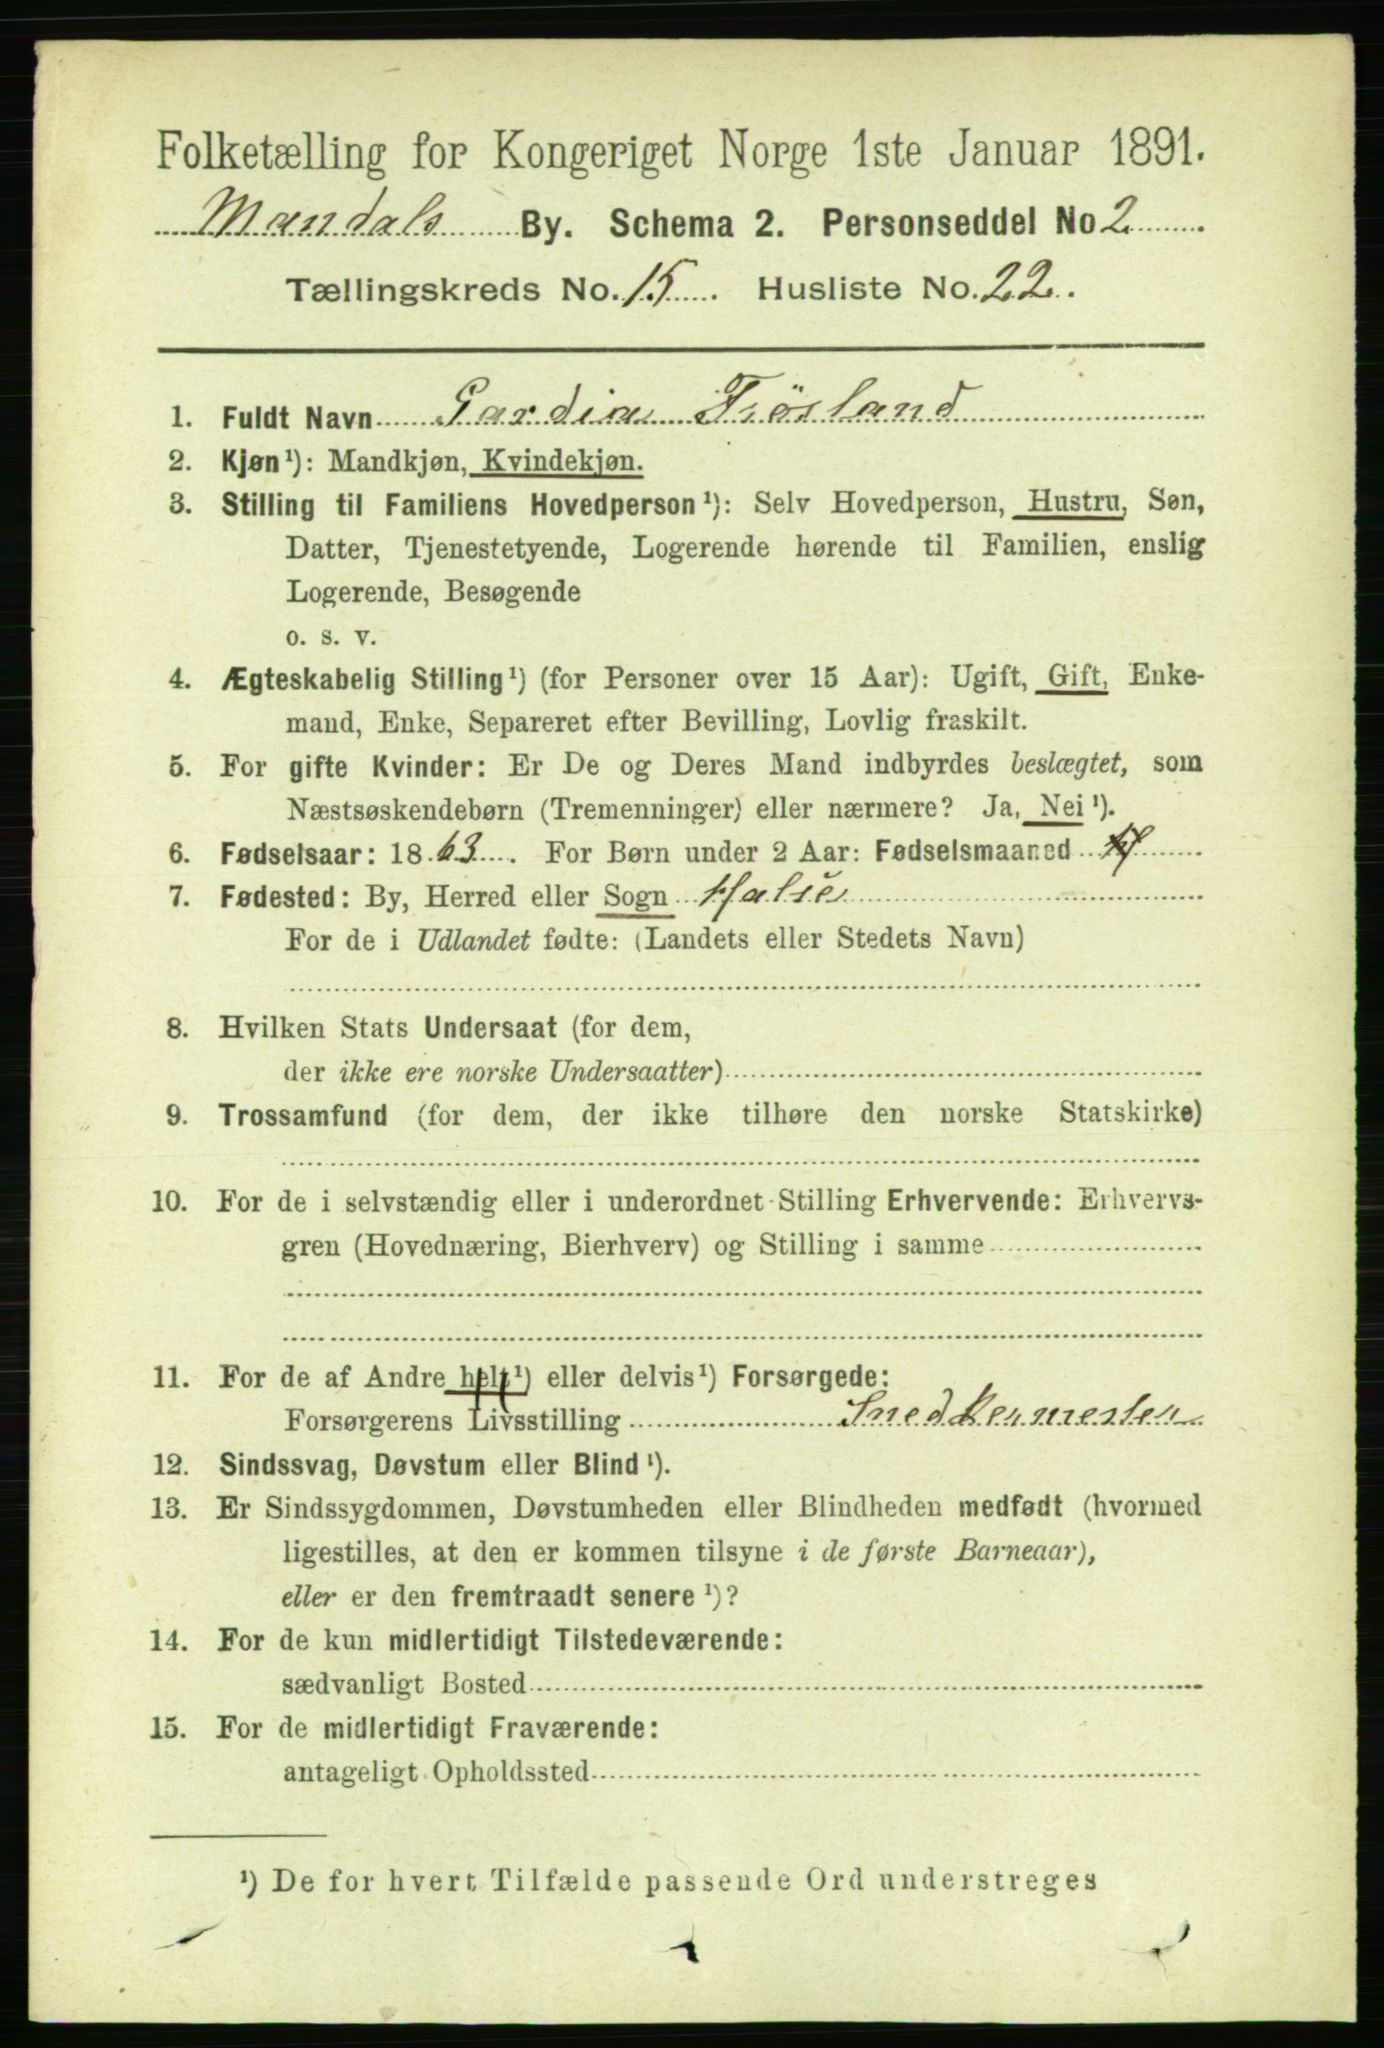 Folketælling for Kongeriget Norge 1ste Januar 1891.
Mandals By. Schema 2. Personseddel No 2
Tællingskreds No. 15. Husliste No. 22.
1. Fuldt Navn Gardia Frösland
2. Kjøn¹): Mandkjøn, Kvindekjøn.
3. Stilling til Familiens Hovedperson¹): Selv Hovedperson, Hustru, Søn,
Datter, Tjenestetyende, Logerende hørende til Familien, enslig
Logerende, Besøgende
o. s. v.
4. Ægteskabelig Stilling¹) (for Personer over 15 Aar): Ugift, Gift, Enke-
mand, Enke, Separeret efter Bevilling, Lovlig fraskilt.
5. For gifte Kvinder: Er De og Deres Mand indbyrdes beslægtet, som
Næstsøskendebørn (Tremenninger) eller nærmere? Ja, Nei¹).
6. Fødselsaar: 1863. For Børn under 2 Aar: Fødselsmaaned
7. Fødested: By, Herred eller Sogn Halse
For de i Udlandet fødte: (Landets eller Stedets Navn)
8. Hvilken Stats Undersaat (for dem,
der ikke ere norske Undersaatter)
9. Trossamfund (for dem, der ikke tilhøre den norske Statskirke)
10. For de i selvstændig eller i underordnet Stilling Erhvervende: Erhvervs-
gren (Hovednæring, Bierhverv) og Stilling i samme
11. For de af Andre helt¹) eller delvis¹) Forsørgede:
Forsørgerens Livsstilling Snedkermester
12. Sindssvag, Døvstum eller Blind¹).
13. Er Sindssygdommen, Døvstumheden eller Blindheden medfødt (hvormed
ligestilles, at den er kommen tilsyne i de første Barneaar),
eller er den fremtraadt senere¹)?
14. For de kun midlertidigt Tilstedeværende:
sædvanligt Bosted
15. For de midlertidigt Fraværende:
antageligt Opholdssted
¹) De for hvert Tilfælde passende Ord understreges